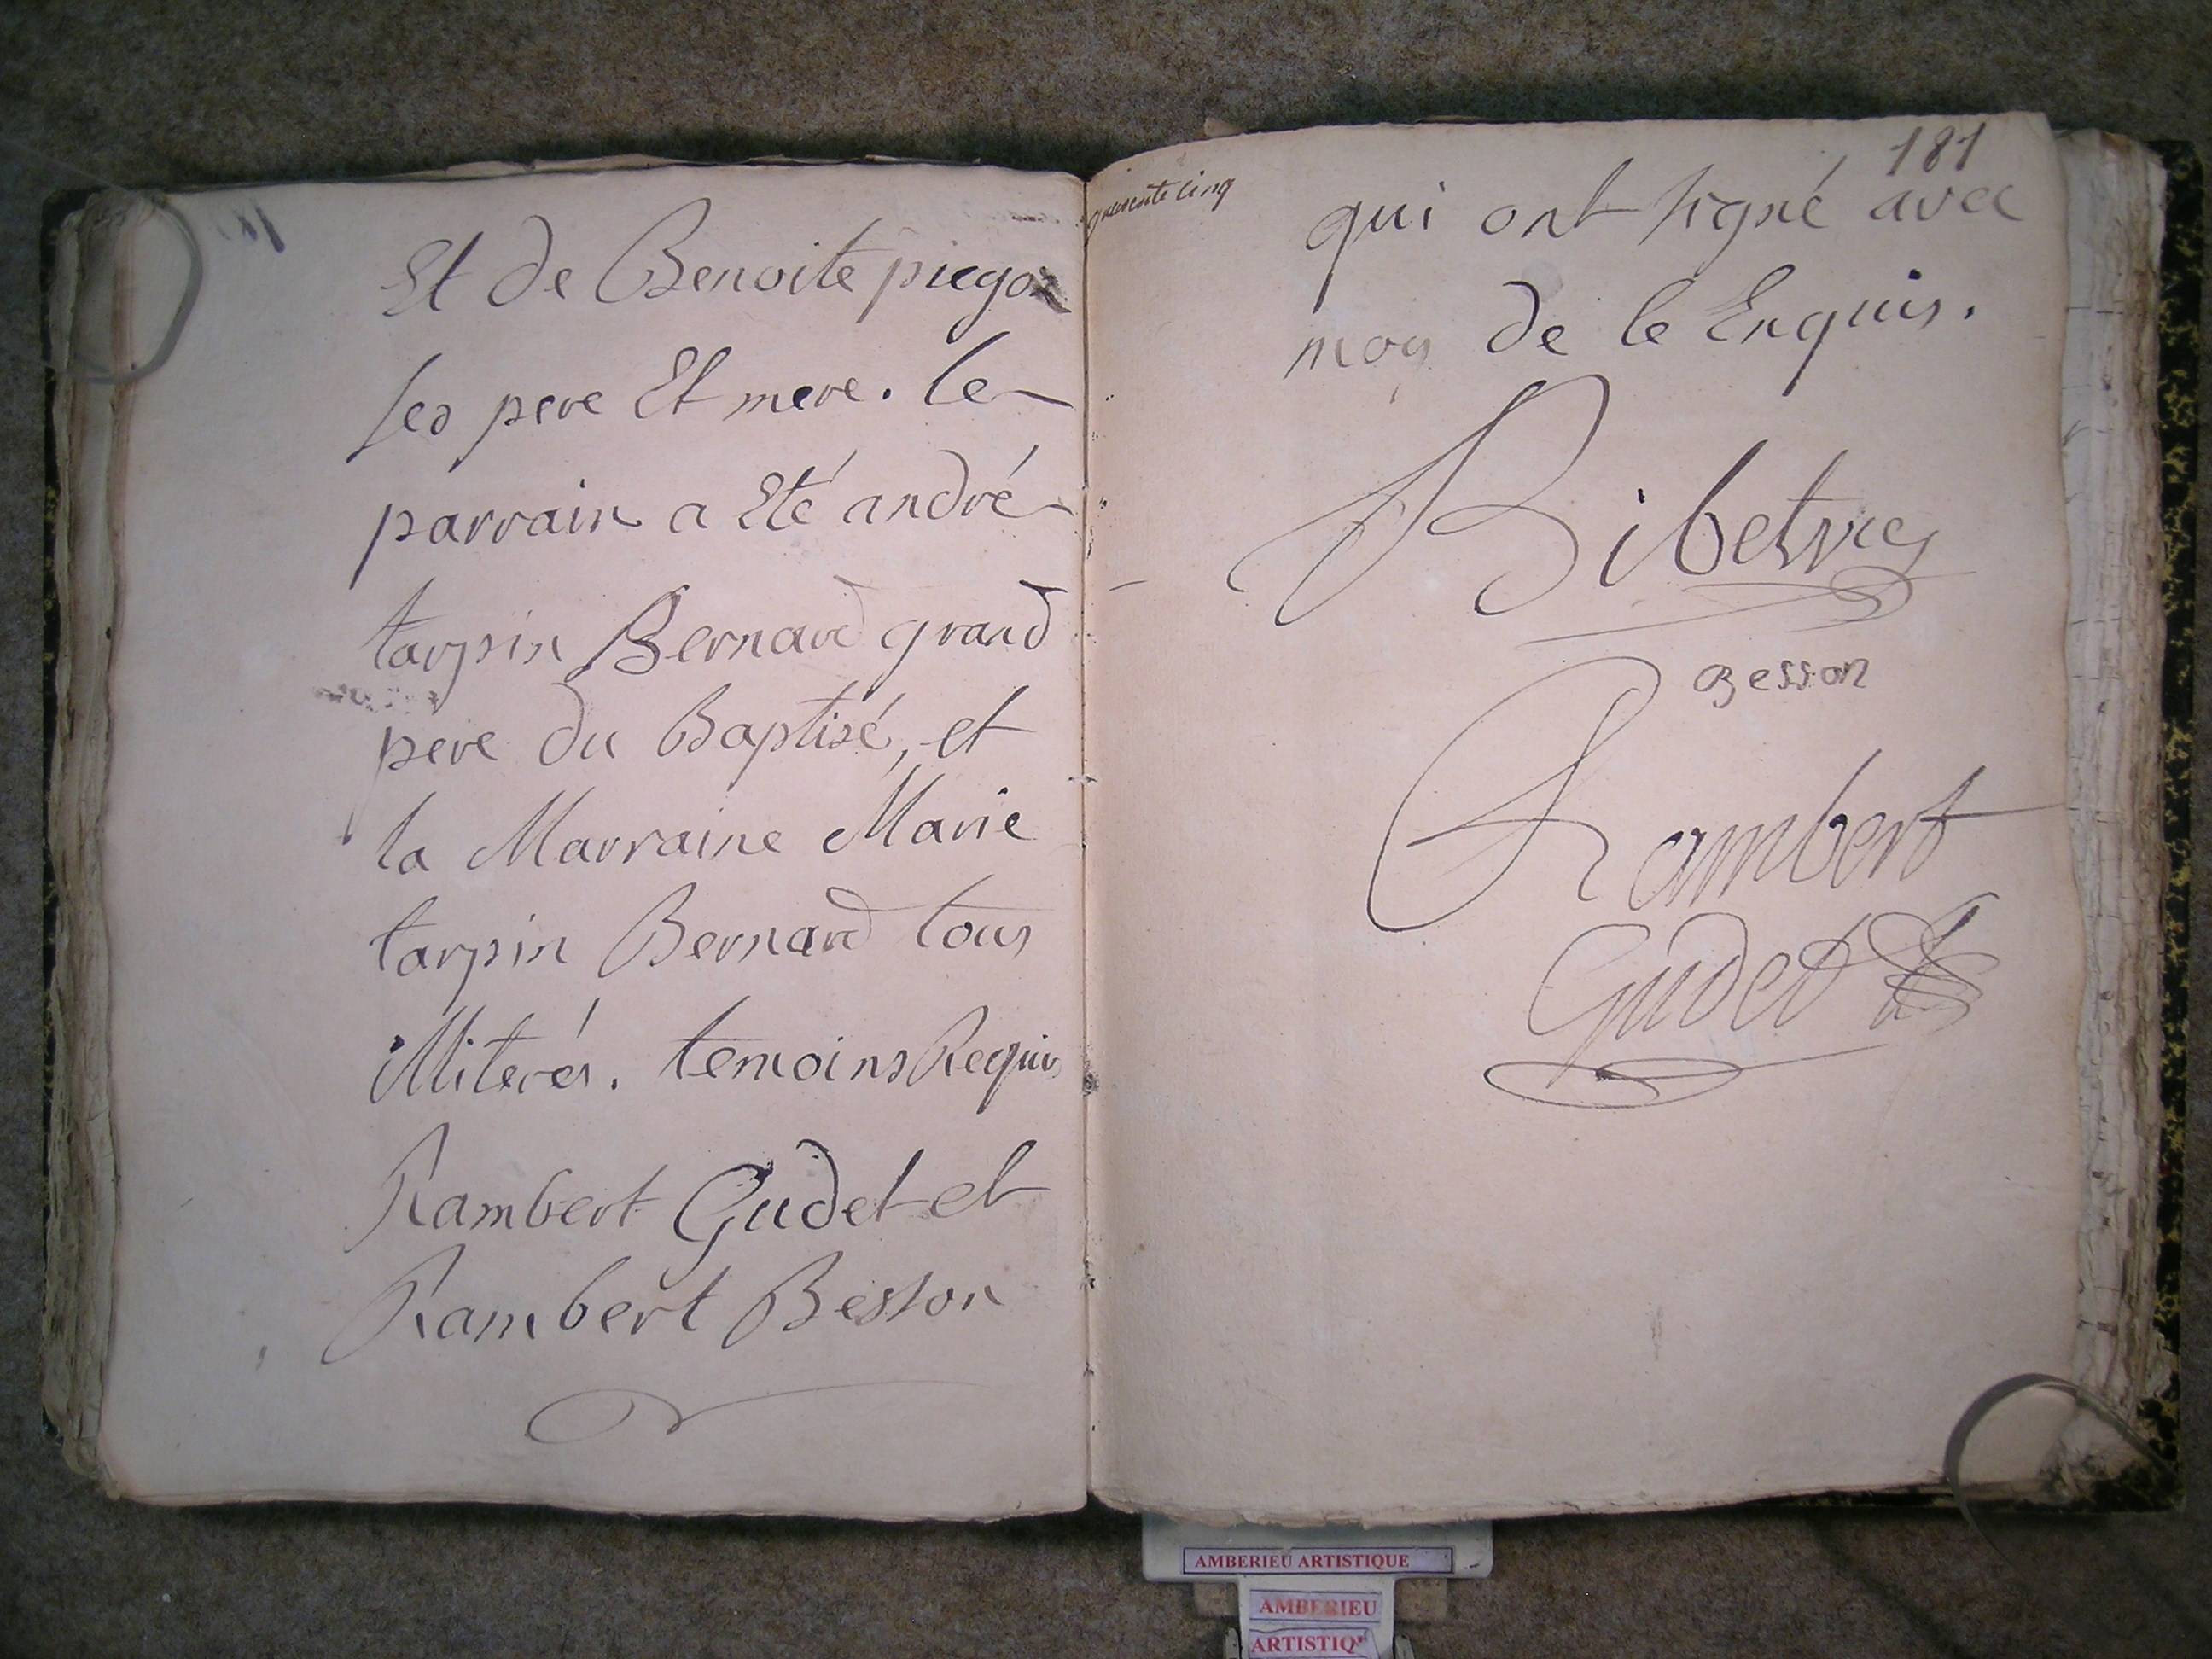 Et de Benoite piegoz
ses pere Et mere. le
parrain a Eté andré
tarpin Bernard grand
pere du Baptisé, et
la Marraine Marie
tarpin Bernard tous
illiterés. temoins Requis
Rambert Gudet et
Rambert Besson
quarente cinq
181
qui ont signé avec
moy de le Enquis.
Besson
Rambert
Gudet
AMBERIEU ARTISTIQUE
AMBERIEU
ARTISTIQ